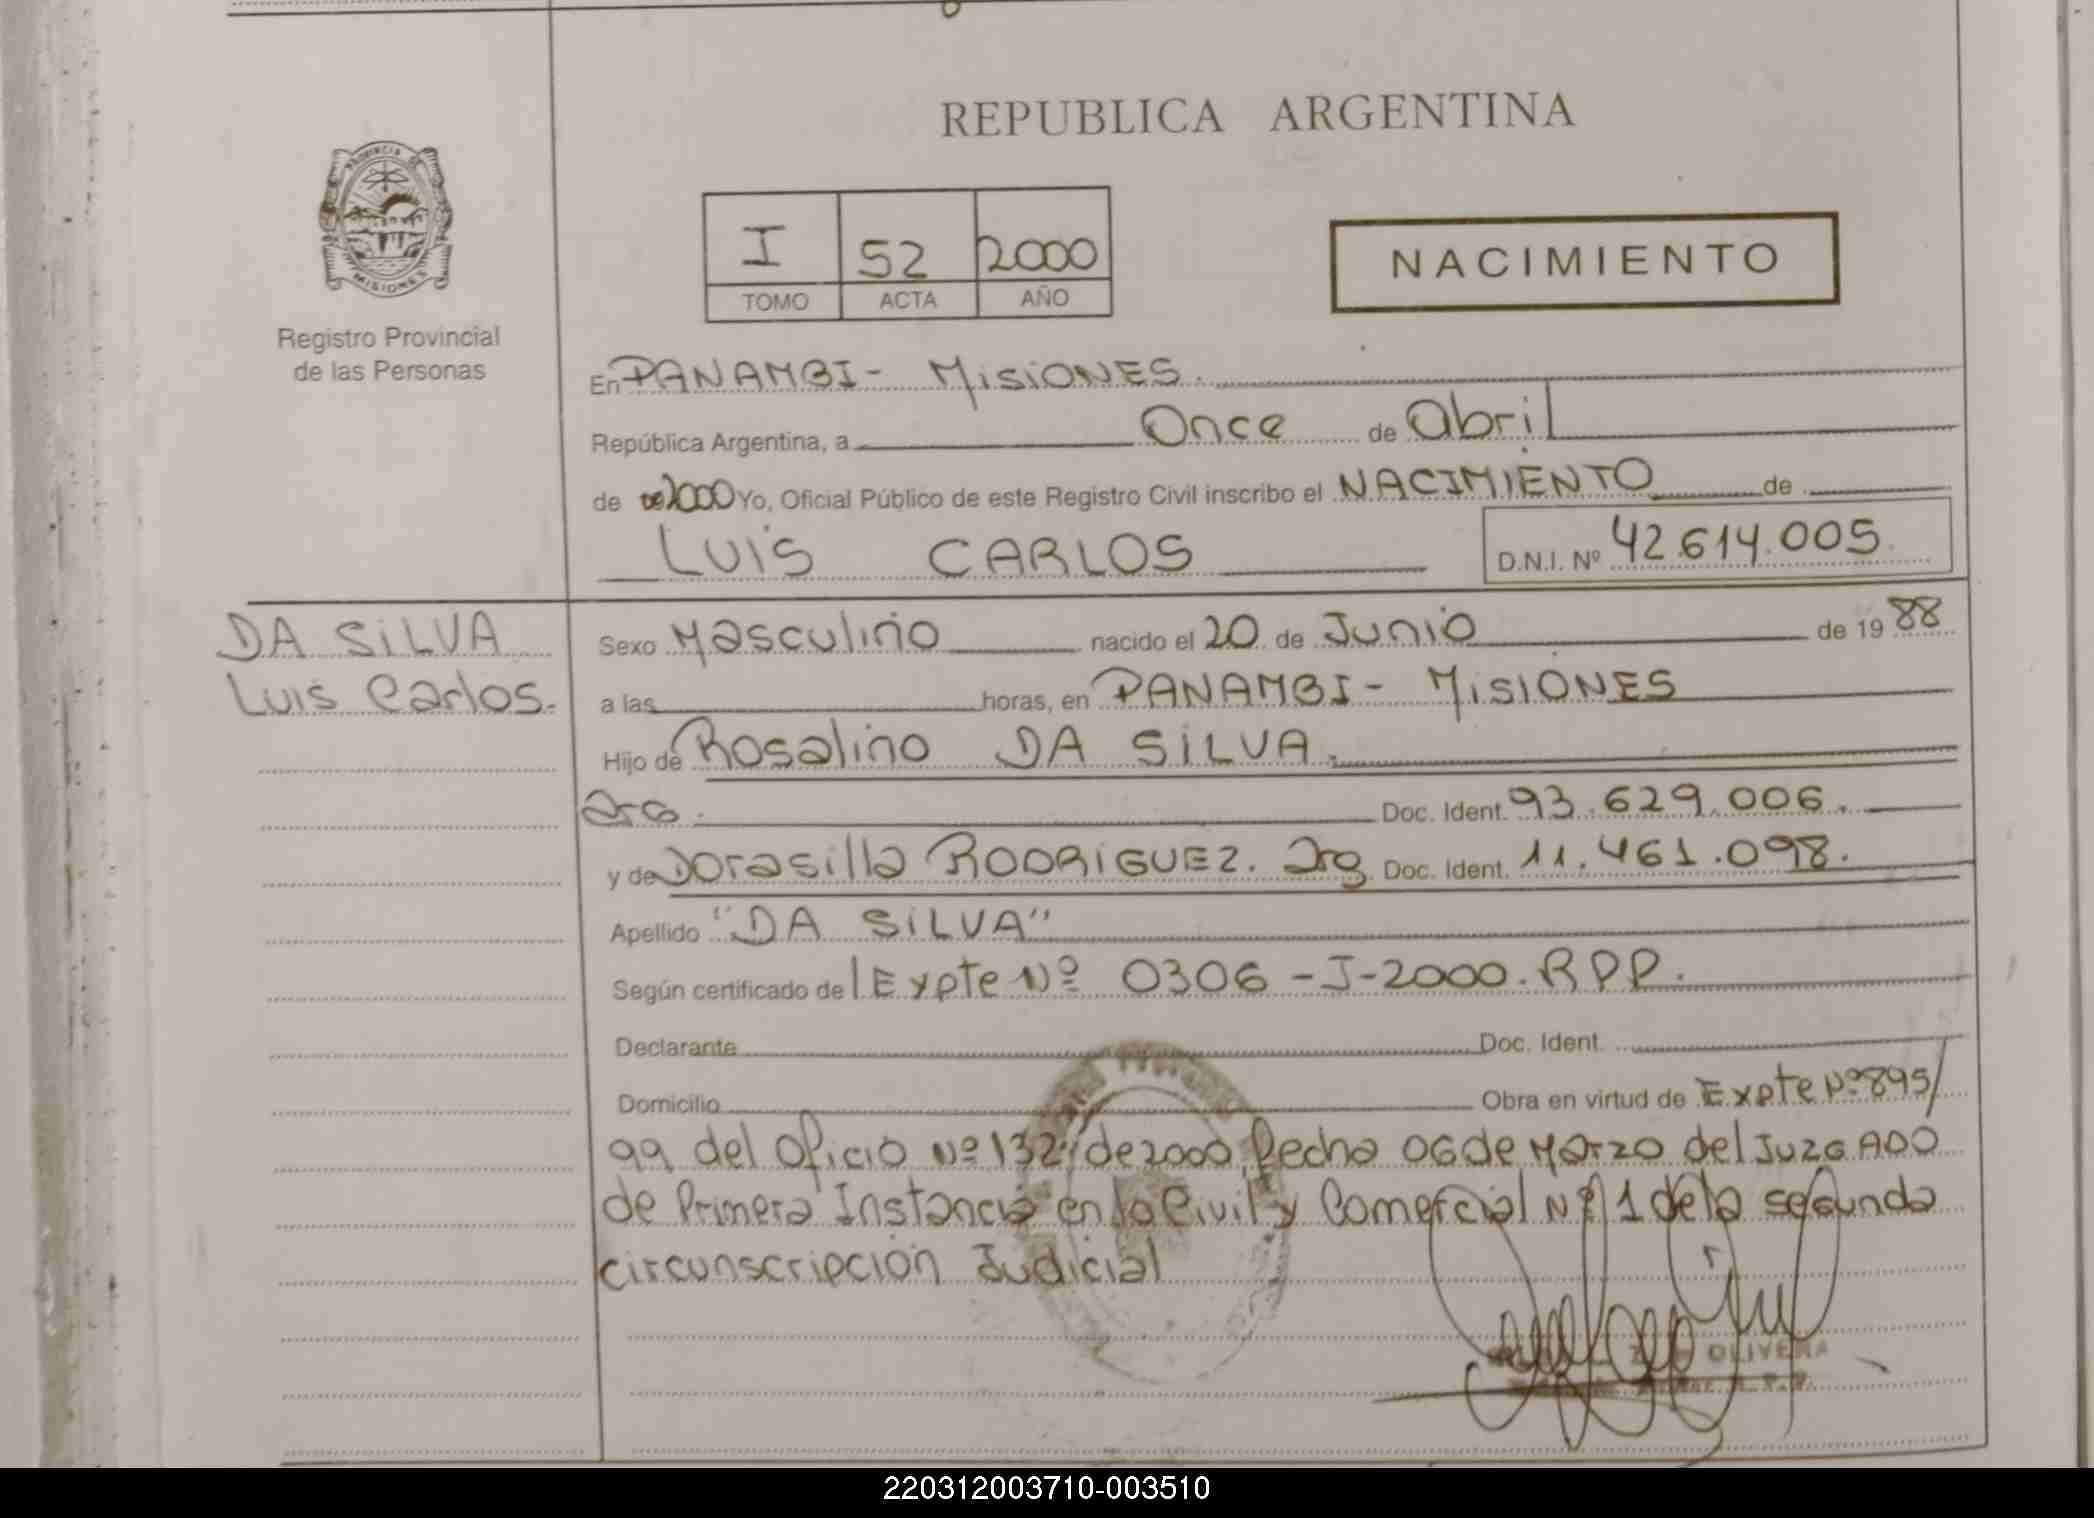 REPUBLICA ARGENTINA
PROVINCIA DE MISIONES
Registro Provincial
de las Personas
I 52 2000
TOMO ACTA AÑO
NACIMIENTO
En PANAMBI - MISIONES.
República Argentina, a Once de abril
de 2000 Yo, Oficial Público de este Registro Civil inscribo el NACIMIENTO de
LUIS CARLOS D.N.I. Nº 42.614.005
DA SILVA
Luis Carlos.
Sexo Masculino nacido el 20 de Junio de 19 88
a las horas, en PANAMBI - MISIONES
Hijo de Rosalino DA SILVA.
arg. Doc. Ident. 93.629.006.
y de Dorasilla RODRIGUEZ. arg. Doc. Ident. 11.461.098.
Apellido "DA SILVA"
Según certificado del Expte Nº 0306-J-2000.RPP.
Declarante Doc. Ident.
Domicilio Obra en virtud de Expte Nº 895/
99 del Oficio Nº 132 de 2000, fecha 06 de Marzo del JUZGADO
de Primera Instancia en lo Civil y Comercial Nº 1 de la segunda
circunscripción Judicial
OLIVERA
220312003710-003510